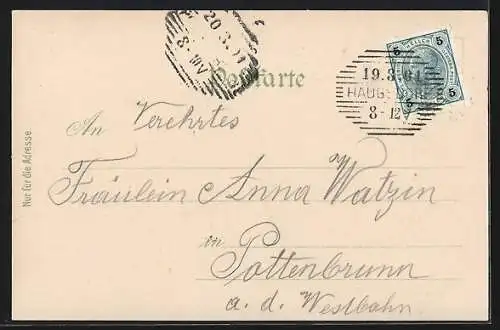 20.3.01
Postkarte
5 5
19.3.01
HAUGSDORF
8-12
5 5
An Verehrtes
Fräulein Anna Watzin
in
Pottenbrunn
a. d. Westbahn.
Nur für die Adresse